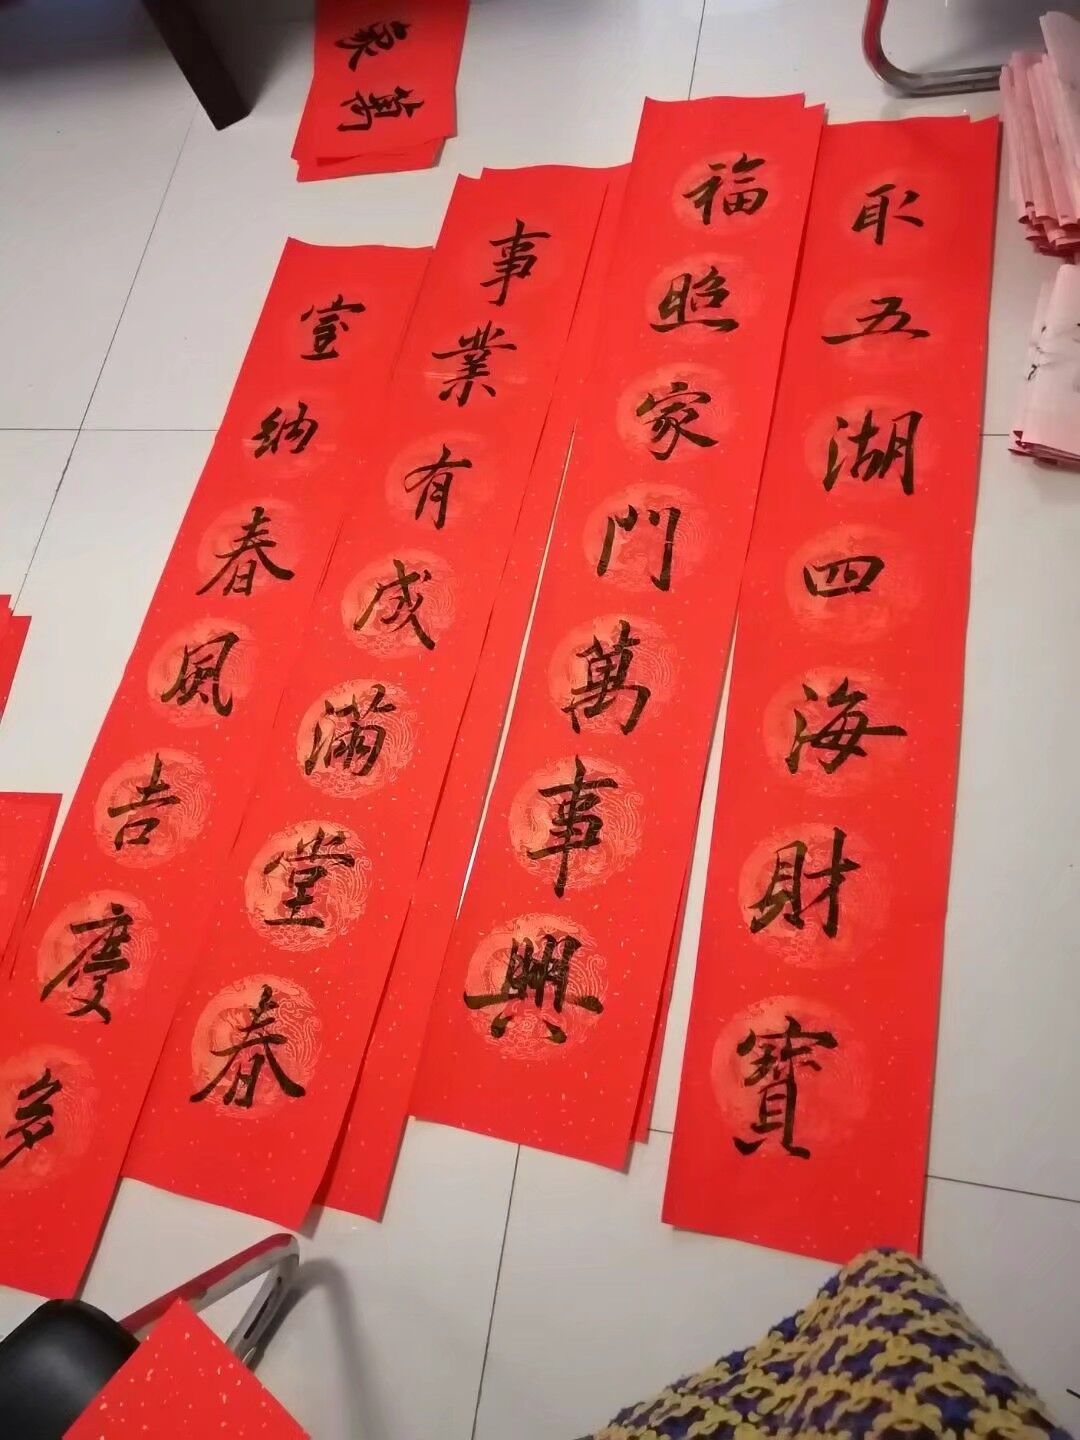 取五湖四海財寶
福照家門萬事興
事業有成滿堂春
室納春風吉慶多
萬象